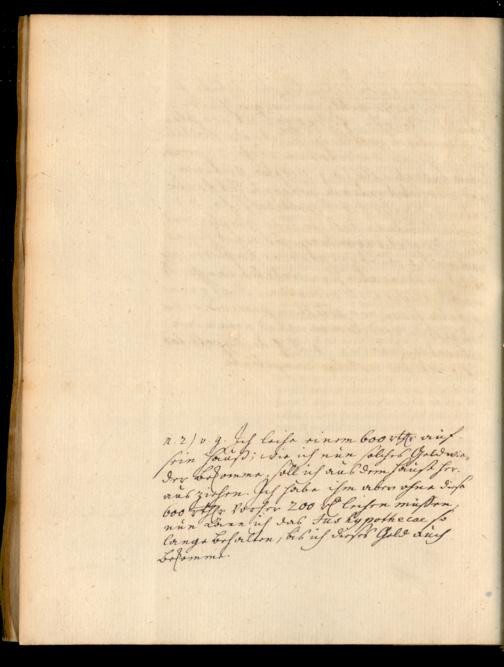 n. 2) v. g. Ich leihe einem 600 rthr auf
sein Hauß; wie ich nun solches Geld wie,
der bekomme, soll ich aus dem Hauße her.
aus ziehen. Ich habe ihm aber ohne diese
600 rthr vorher 200 leihen müssen,
nun kann ich das Jus hypothecae so
lange behalten, bis ich dieses Geld auch
bekomme.